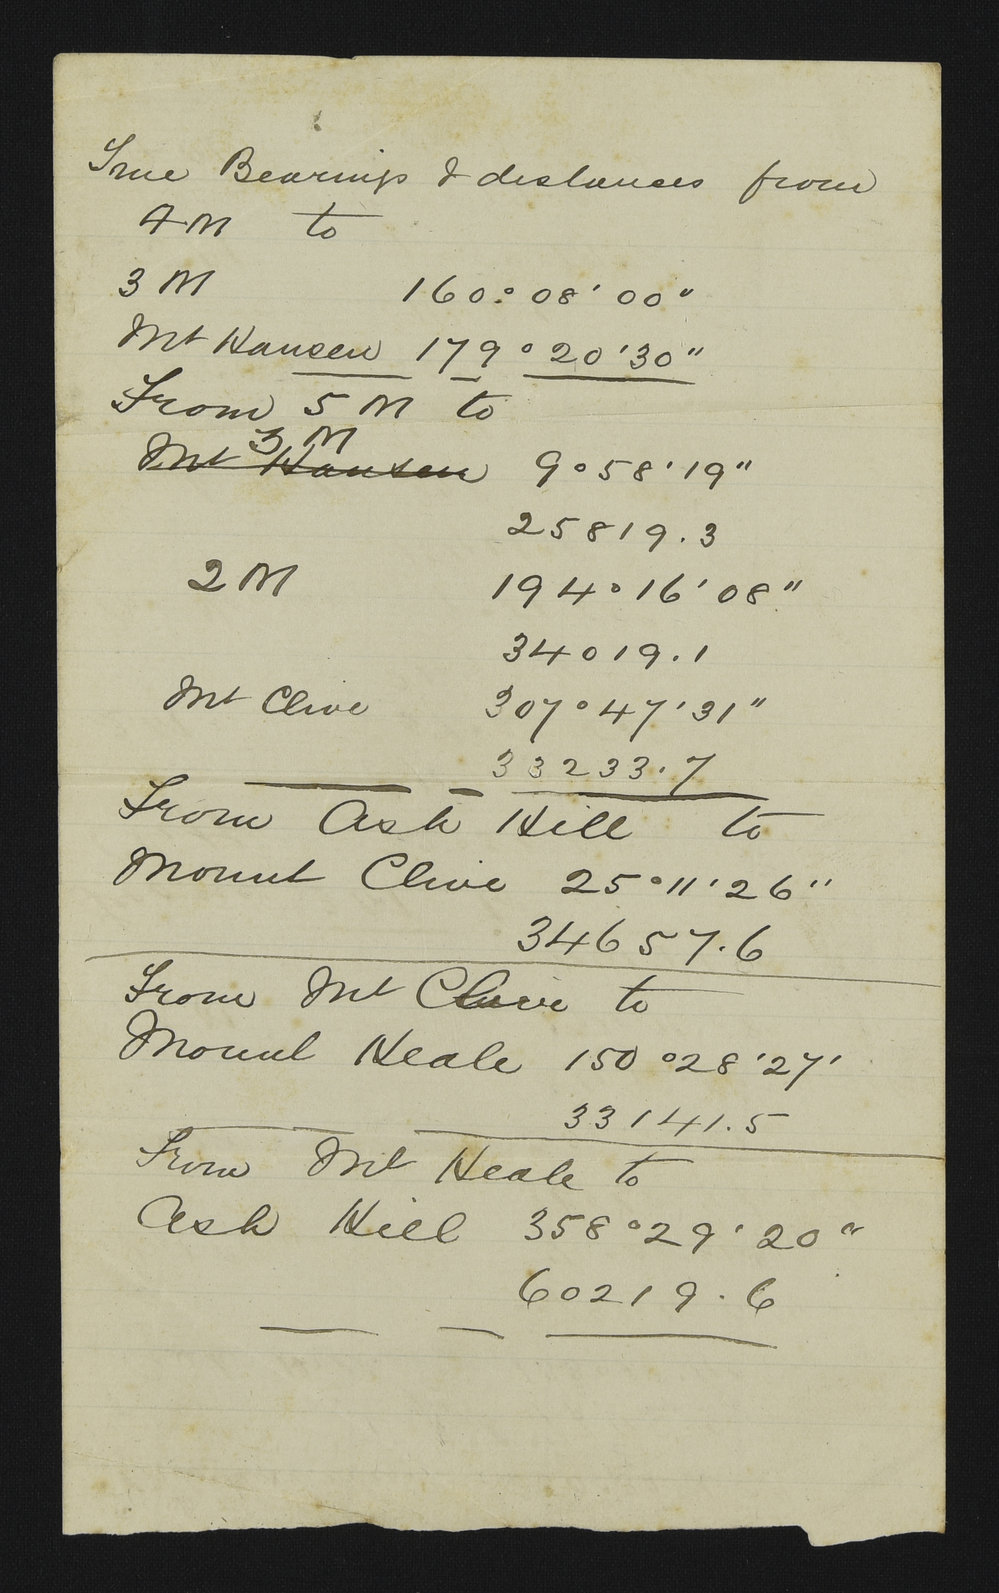 True Bearings & distances from
4 M to
3 M 160° 08' 00"
Mt Hansen 179° 20' 30"
From 5 M to
3 M
Mt Hansen 9° 58' 19"
25819.3
2 M 194° 16' 08"
34019.1
Mt Clive 307° 47' 31"
33233.7
From Ash Hill to
Mount Clive 25° 11' 26"
34657.6
From Mt Clive to
Mount Heale 150° 28' 27'
33141.5
From Mt Heale to
Ash Hill 358° 29' 20"
60219.6